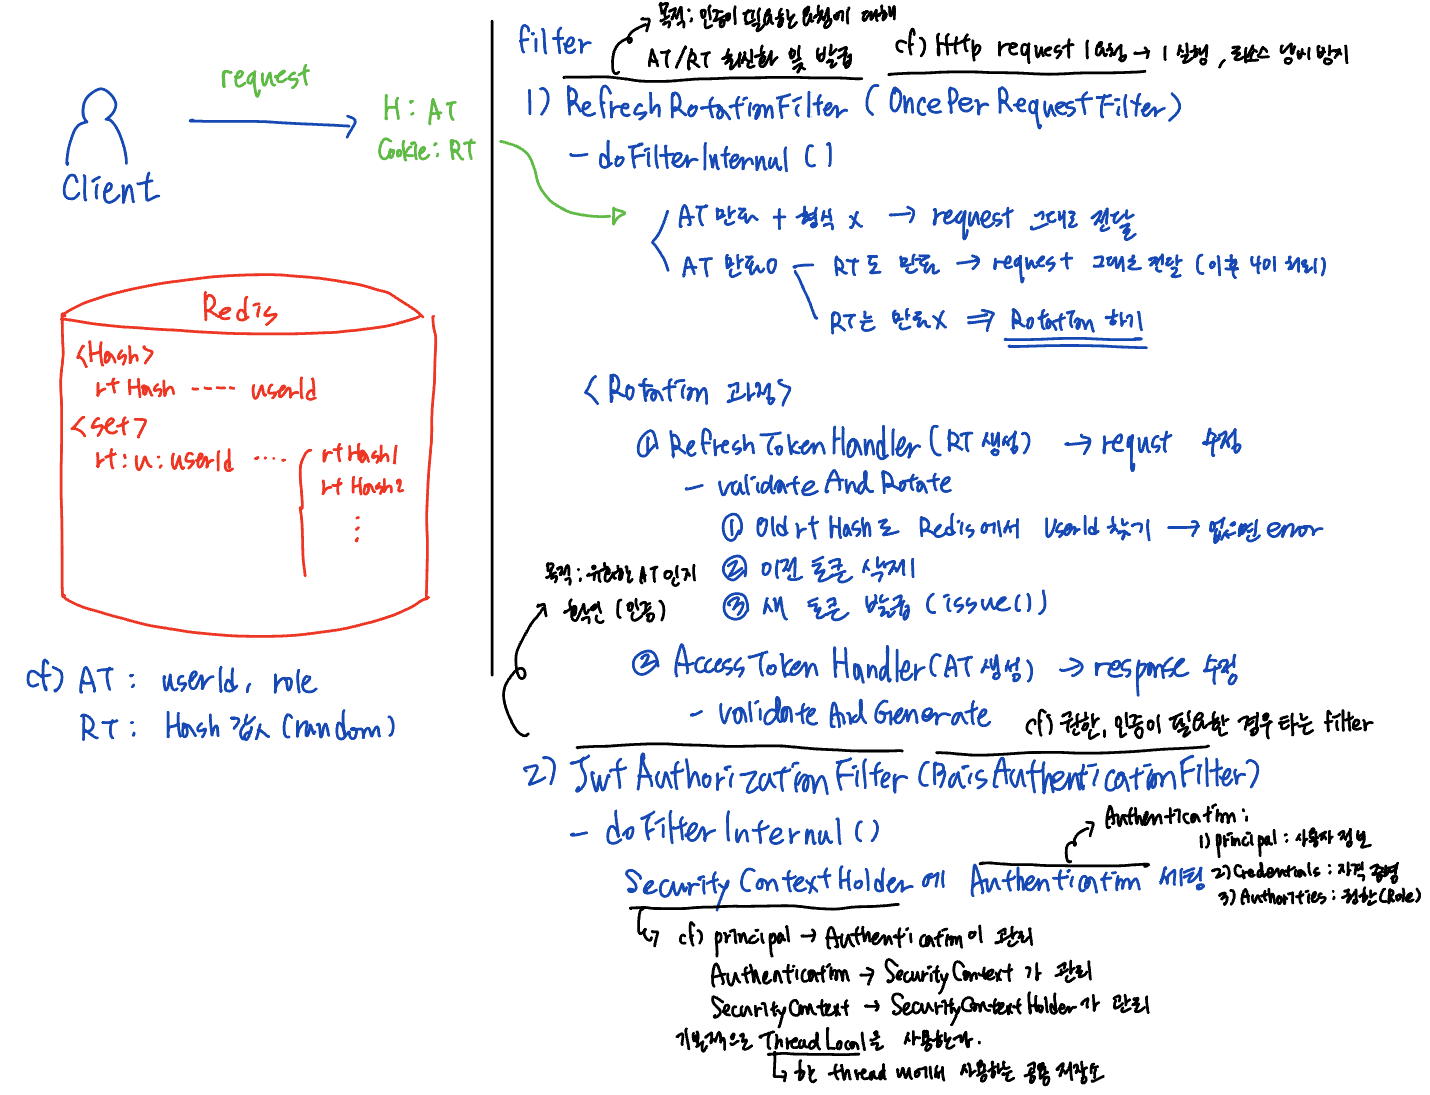 request
H : AT
Cookie : RT
Client
Redis
<Hash>
rt Hash ---- userId
<set>
rt : u : userId ---- rt Hash1
rt Hash2
⋮
cf) AT : userId, role
RT : Hash 값 (random)
filter
목적 : 인증이 필요한 요청에 대해
AT/RT 최신화 및 발급
cf) Http request 1요청 → 1 실행, 리소스 낭비 방지
1) RefreshRotationFilter (OncePerRequestFilter)
- doFilterInternal ()
AT 만료 + 형식 x → request 그대로 전달
AT 만료O - RT도 만료 → request 그대로 전달 (이후 401 처리)
RT는 만료X ⇒ Rotation 하기
<Rotation 과정>
① RefreshTokenHandler (RT 생성) → requst 수정
- validateAndRotate
① Old rt Hash로 Redis에서 UserId 찾기 → 없으면 error
② 이전 토큰 삭제
③ 새 토큰 발급 (issue())
② AccessTokenHandler (AT 생성) → response 수정
- validateAndGenerate
목적 : 유효한 AT인지
확인 (인증)
cf) 권한, 인증이 필요한 경우 타는 filter
2) JwtAuthorizationFilter (BaisAuthenticationFilter)
- doFilterInternal ()
SecurityContextHolder에 Authentication 세팅
Authentication :
1) principal : 사용자 정보
2) Credentials : 자격 증명
3) Authorities : 권한(Role)
cf) principal → Authentication이 관리
Authentication → SecurityContext가 관리
SecurityContext → SecurityContextHolder가 관리
기본적으로 ThreadLocal을 사용한다.
한 thread 내에서 사용하는 공용 저장소